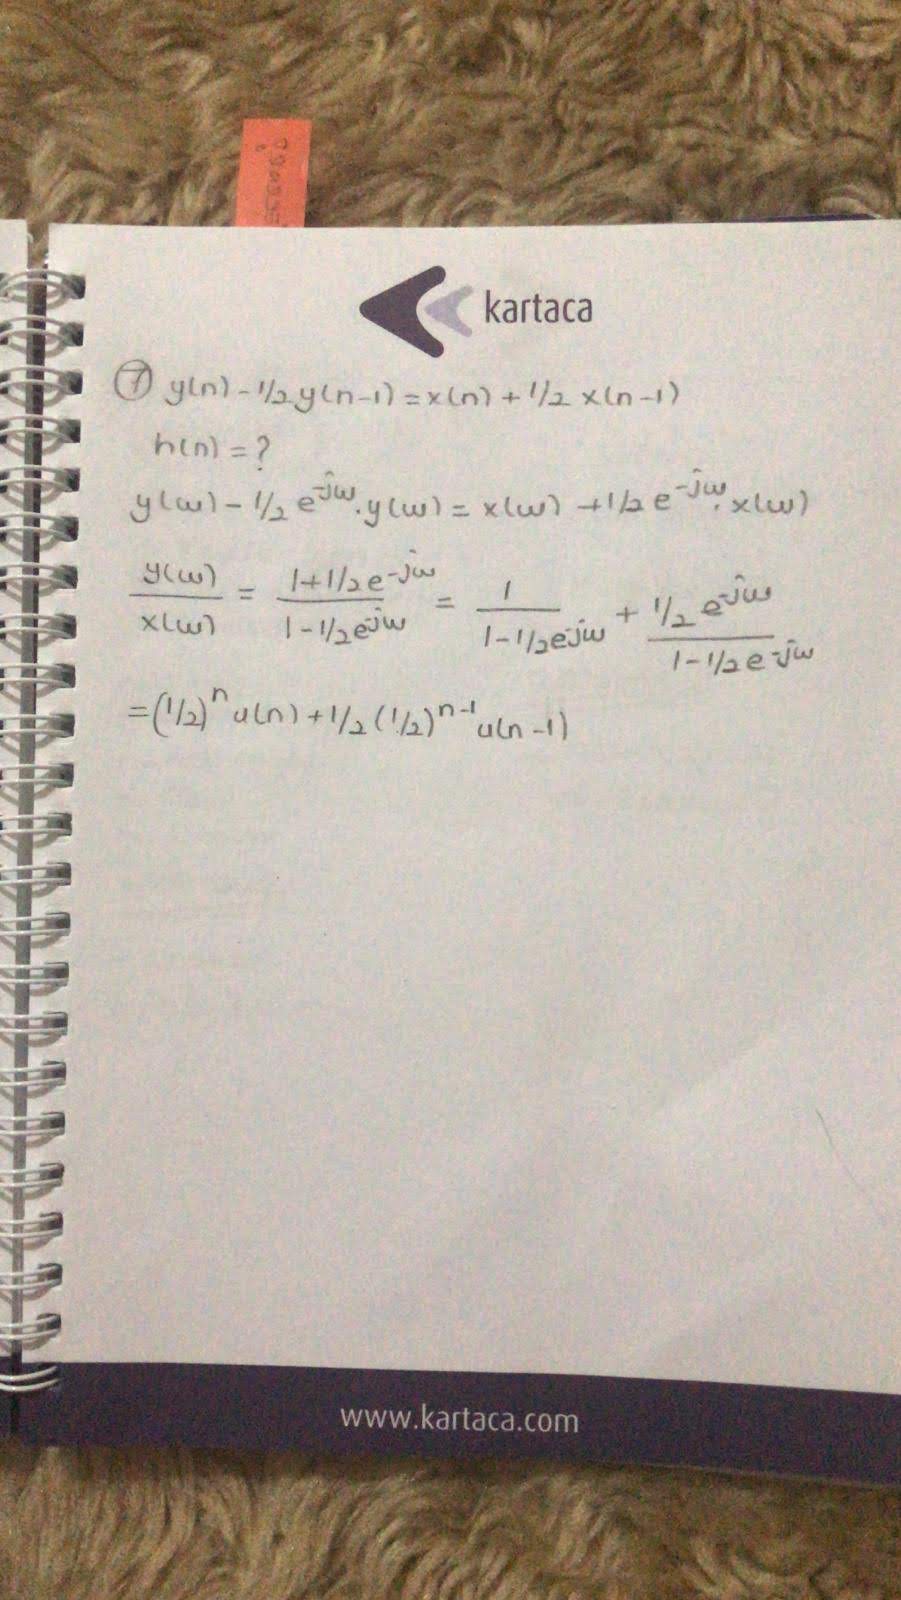 kartaca
7 y(n) - 1/2 y(n-1) = x(n) + 1/2 x(n-1)
h(n) = ?
y(w) - 1/2 e^-jw . y(w) = x(w) + 1/2 e^-jw . x(w)
y(w)/x(w) = 1+1/2e^-jw / 1-1/2e^-jw = 1 / 1-1/2e^-jw + 1/2 e^-jw / 1-1/2 e^-jw
= (1/2)^n u(n) + 1/2 (1/2)^n-1 u(n-1)
www.kartaca.com